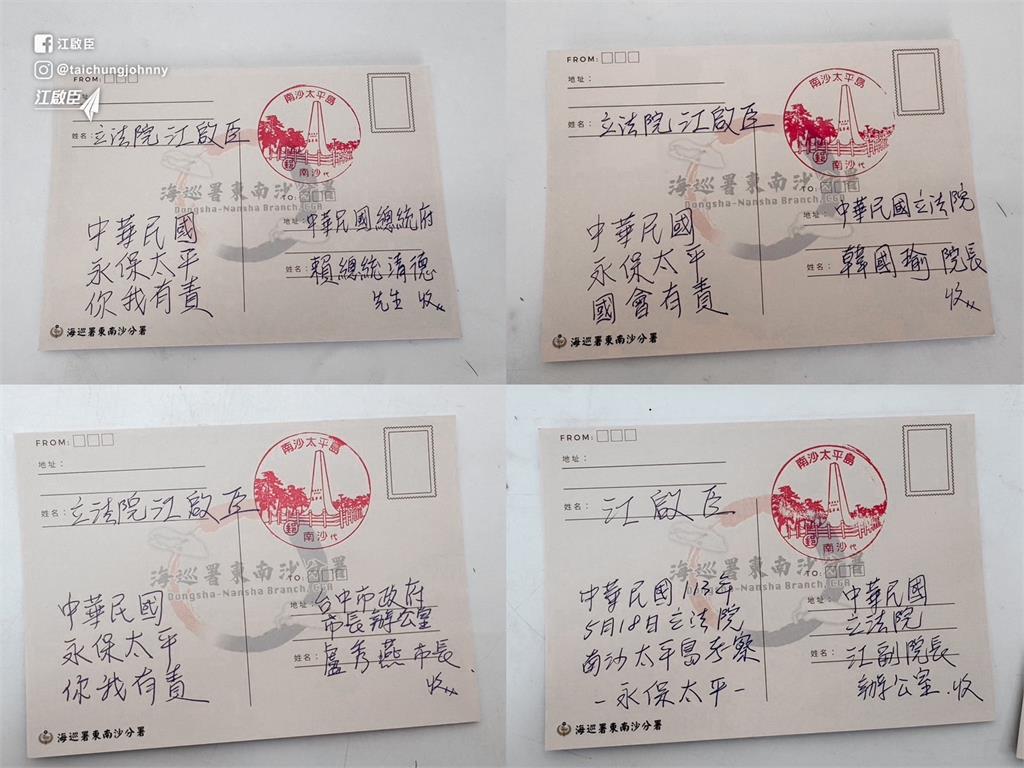 江啟臣
@taichungjohnny
江啟臣
FROM:
地址：
姓名：立法院 江啟臣
南沙太平島
郵
南沙 代
海巡署東南沙分署
Dongsha-Nansha Branch,CGA
TO:
中華民國
永保太平
你我有責
地址：中華民國總統府
姓名：賴總統清德
先生 收
海巡署東南沙分署
FROM:
地址：
姓名：立法院 江啟臣
南沙太平島
郵
南沙 代
海巡署東南沙分署
Dongsha-Nansha Branch,CGA
TO:
中華民國
永保太平
國會有責
地址：中華民國立法院
姓名：韓國瑜 院長
收
海巡署東南沙分署
FROM:
地址：
姓名：立法院 江啟臣
南沙太平島
郵
南沙 代
海巡署東南沙分署
Dongsha-Nansha Branch,CGA
TO:
中華民國
永保太平
你我有責
地址：台中市政府
市長辦公室
姓名：盧秀燕 市長
收
海巡署東南沙分署
FROM:
地址：
姓名：江啟臣
南沙太平島
郵
南沙 代
海巡署東南沙分署
Dongsha-Nansha Branch,CGA
TO:
中華民國113年
5月18日立法院
南沙太平島考察
-永保太平-
地址：中華民國
立法院
姓名：江副院長
辦公室 收
海巡署東南沙分署